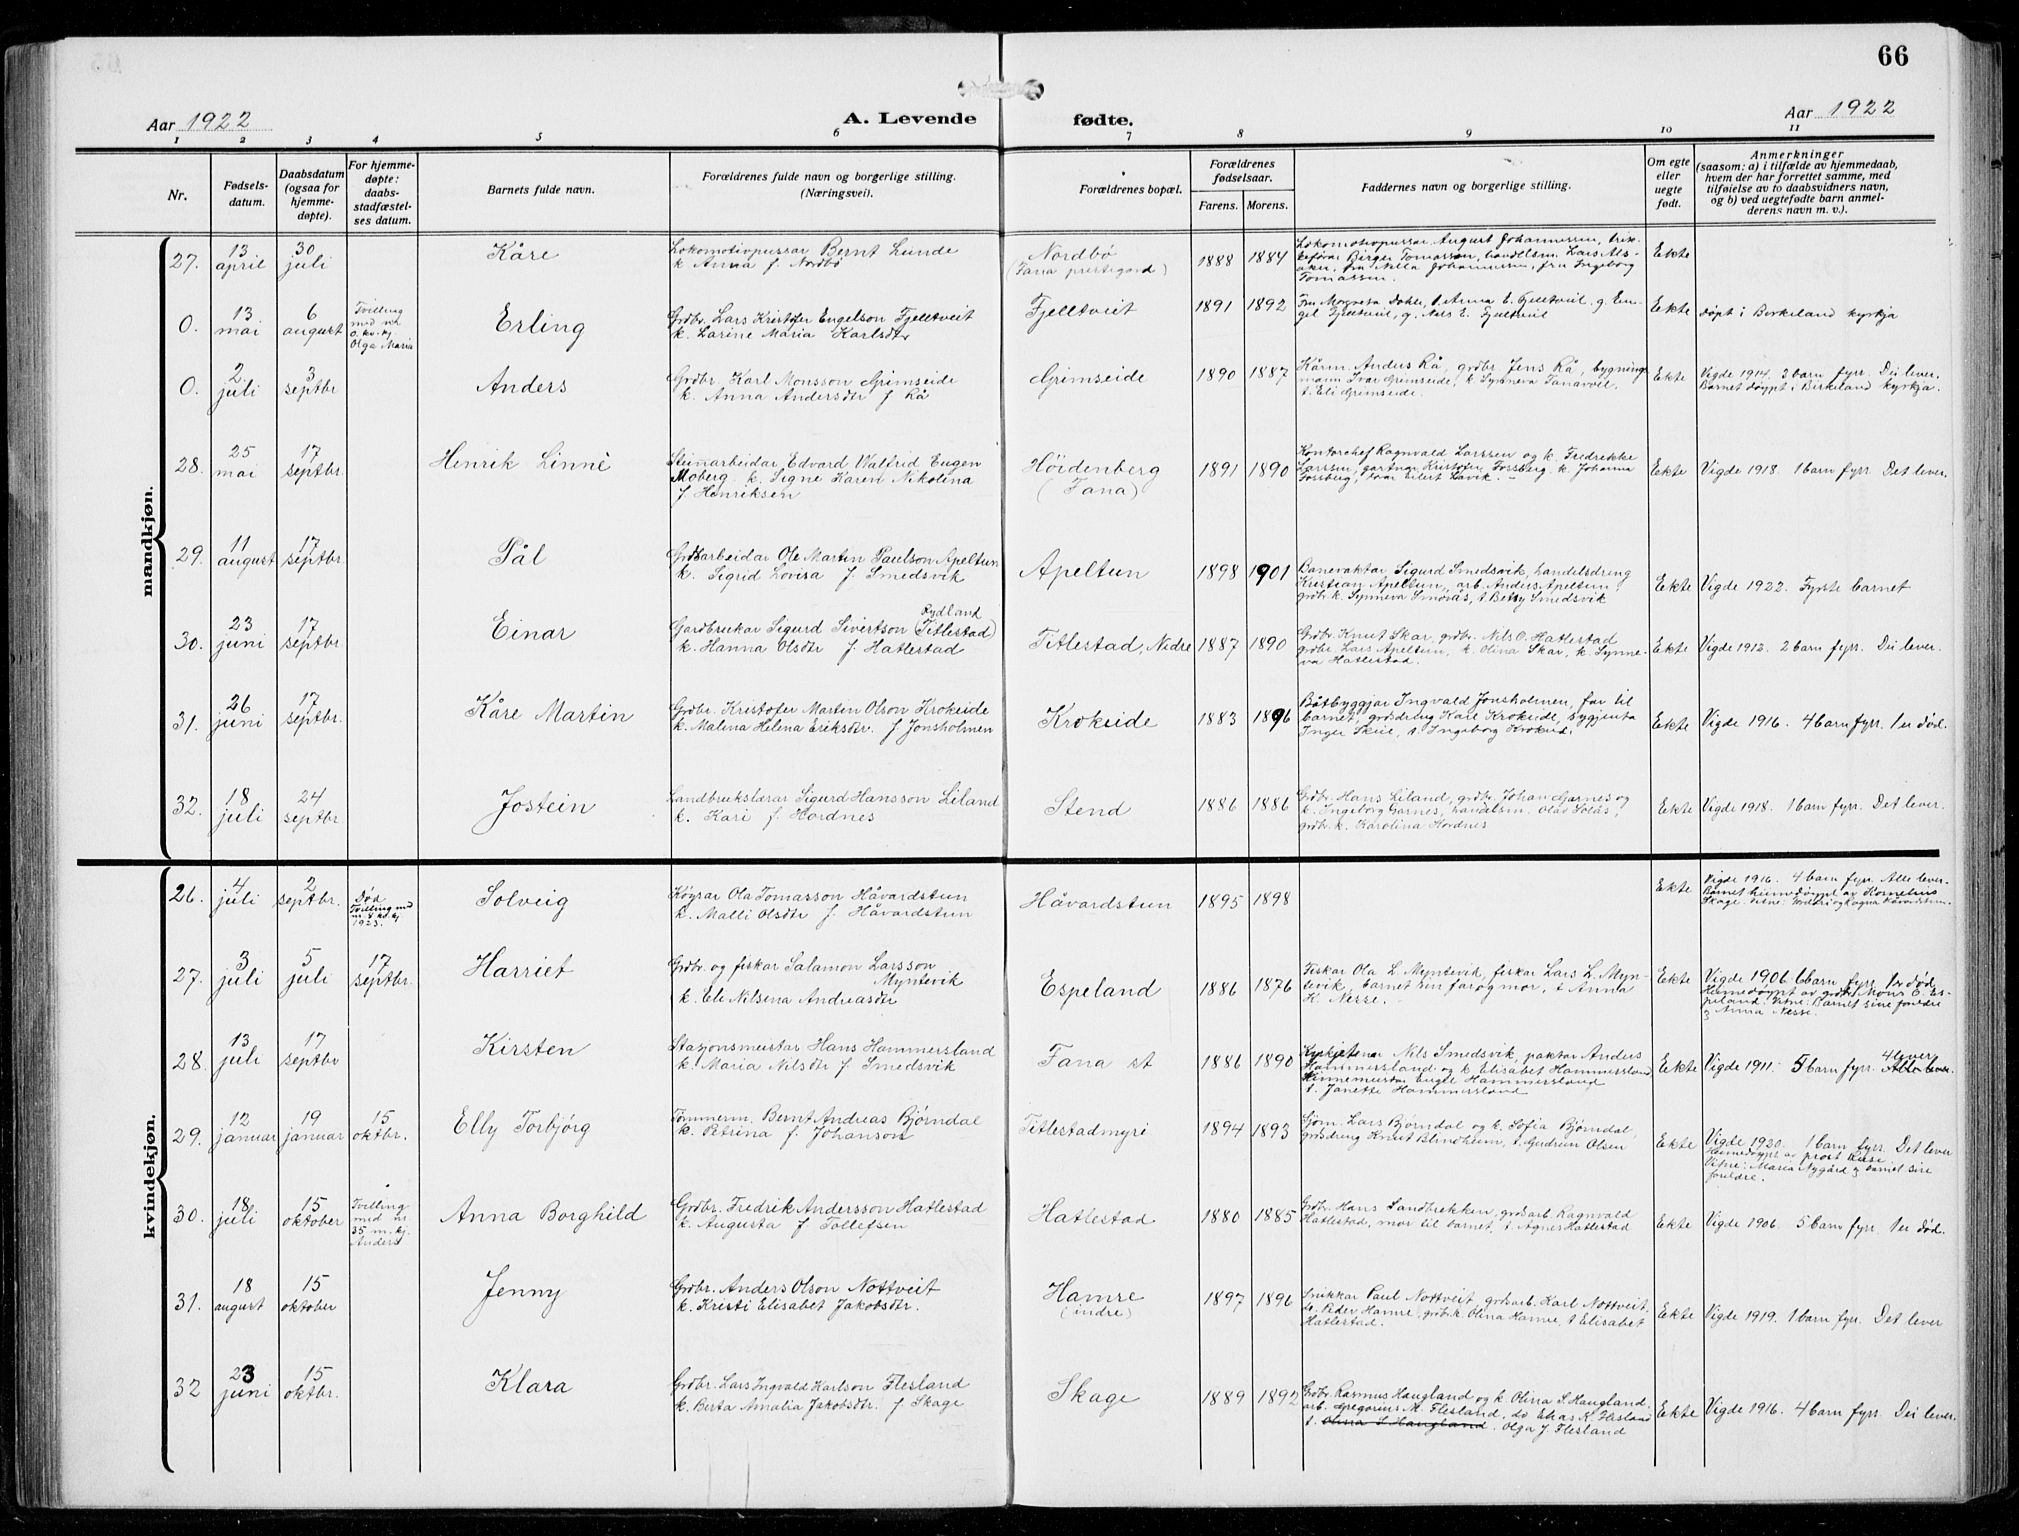 66
Aar 1922
A. Levende fødte.
Aar 1922
1 2 3 4 5 6 7 8 9 10 11
Nr.
Fødsels-
datum.
Daabsdatum
(ogsaa for
hjemme-
døpte).
For hjemme-
døpte:
daabs-
stadfæstel-
ses datum.
Barnets fulde navn.
Forældrenes fulde navn og borgerlige stilling.
(Næringsvei).
Forældrenes bopæl.
Forældrenes
fødselsaar.
Farens. Morens.
Faddernes navn og borgerlige stilling.
Om egte
eller
uegte
født.
Anmerkninger
(saasom: a) i tilfælde av hjemmedaab,
hvem der har forrettet samme, med
tilføielse av to daabsvidners navn,
og b) ved uegtefødte barn anmel-
derens navn m. v.).
mandkjøn.
27.
13
april
30
juli
Kåre
Lokomotivpussar Bernt Lunde
k. Anna f. Nordbø
Nordbø
(Fana prestegard)
1888 1884
Lokomotivpussar August Johannessen,
Birger Tomassen, handelsm. Lars Als-
aker, fru Nella Johannessen, fru Ingeborg
Tomassen.
Ekte
0.
13
mai
6
august
Tvilling
med nr.
0. kv.kj.
Olga Maria
Erling
Grdbr. Lars Kristofer Engelson Fjelltveit
k. Larine Maria Karlsdtr
Fjelltveit
1891 1892
Fru Dahle, t. Anna E. Fjelltveit, g. En-
gel Fjelltveit, g. Nils E. Fjelltveit
Ekte
døpt i Birkeland kyrkja
0.
2
juli
3
septbr
Anders
Grdbr. Karl Monsson Grimseide
k. Anna Andersdtr f. Rå
Grimseide
1890 1887
Kårm. Anders Rå, grdbr. Jens Rå, bygnings
mann Ivar Grimseide, k. Synneva Fanavoll,
t. Eli Grimseide.
Ekte
Vigde 1914. 2 barn fyrr. Dei lever.
Barnet døypt i Birkeland kyrkja.
28.
25
mai
17
septbr.
Henrik Linné
Steinarbeidar Edvard Walfrid Eugen
Moberg. k. Signe Karen Nikolina
f. Henriksen
Høidenberg
(Fana)
1891 1890
Kontorchef Ragnvald Larssen og k. Fredrikke
Larssen, gartnar Kristofer Fossberg, k. Johanna
Fossberg, Ivar Eilert Løvik.
Ekte
Vigde 1918. 1 barn fyrr. Det lever.
29.
11
august
17
septbr.
Pål
Grdsarbeidar Ole Martin Paulson Apeltun
k. Sigrid Lovisa f. Smedsvik
Apeltun
1898 1901
Banevaktar Sigurd Smedsvik, handelsdreng
Kristian Apeltun, arb. Anders Apeltun,
grdbr. k. Synneva Smørås, t. Betsy Smedsvik
Ekte
Vigde 1922. Fyrste barnet
30.
23
juni
17
septbr.
Einar
Rydland
Gardbrukar Sigurd Sivertson (Titlestad)
k. Hanna Olsdtr f. Hatlestad
Titlestad, Nedre
1887 1890
Grdbr. Knut Skar, grdbr. Nils O. Hatlestad
grdbr. Lars Apeltun, k. Olina Skar, k. Synne-
va Hatlestad.
Ekte
Vigde 1912. 2 barn fyrr. Dei lever.
31.
26
juni
17
septbr.
Kåre Martin
Grdbr. Kristofer Martin Olson Krokeide
k. Malena Helena Eriksdtr. f. Jonsholmen
Krokeide
1883 1896
Båtbyggjar Ingvald Jonsholmen, far til
barnet, grdsdreng Karl Krokeide, sygjenta
Inger Skeie, t. Ingeborg Krokeid.
Ekte
Vigde 1916. 4 barn fyrr. 1 er død.
32.
18
juli
24
septbr
Jostein
Landbrukslærar Sigurd Hansson Liland
k. Kari f. Hordnes
Stend
1886 1886
Grdbr. Hans Liland, grdbr. Johan Garnes og
k. Ingeborg Garnes, handelsm. Olav Solås,
grdbr. k. Karolina Hordnes
Ekte
Vigde 1918. 1 barn fyrr. Det lever.
kvindekjøn.
26.
4
juli
2
septbr.
Død
Tvilling med
1923.
Solveig
Køyrar Ola Tomasson Håvardstun
k. Malli Olsdtr f. Håvardstun
Håvardstun
1895 1898
Ekte
Vigde 1916. 4 barn fyrr. Alle lever.
Barnet heimedøypt av Kornelius
Skage. Vitne: foreldri og Ragna Håvardstun.
27.
3
juli
5
juli
17
septbr.
Harriet
Grdbr. og fiskar Salamon Larsson
Myntevik
k. Eli Nilsena Andreasdtr
Espeland
1886 1876
Fiskar Ola L. Myntevik, fiskar Lars L. Myn-
tevik, barnet sin far og mor, t. Anna
K. Nesse.
Ekte
Vigde 1906. 6 barn fyrr. 1 er død
Heimedøypt av grdbr. Mons E. Es-
peland. Vitne: Barnet sine foreldre
og Anna Nesse.
28.
13
juli
17
septbr
Kirsten
Stasjonsmeistar Hans Hammersland
k. Maria Nilsdtr f. Smedsvik
Fana st
1886 1890
Kyrkjetenar Nils Smedsvik, paktar Anders
Hammersland og k. Elisabet Hammersland
Engle Hammersland
t. Janette Hammersland
Ekte
4 lever
Vigde 1911. 5 barn fyrr. Alle lever.
29.
12
januar
19
januar
15
oktbr.
Elly Torbjørg
Tømmerm. Bernt Andreas Bjørndal
k. Petrina f. Johanson
Titlestadmyri
1894 1893
Sjøm. Lars Bjørndal og k. Sofia Bjørndal,
grdsdreng Knut Blindheim, t. Gudrun Olsen
Ekte
Vigde 1920. 1 barn fyrr. Det lever
Heimedøypt av prost Riise
Vitne: Maria Nygård og barnet sine
foreldre.
30.
18
juli
15
oktober
Tvilling
med nr.
35 m.kj.
Anders
Anna Borghild
Grdbr. Fredrik Andersson Hatlestad
k. Augusta f. Tollefsen
Hatlestad
1880 1885
Grdbr. Hans Sandbrekken, grdsarb. Ragnvald
Hatlestad, mor til barnet, t. Agnes Hatlestad
Ekte
Vigde 1906. 5 barn fyrr. 1 er død.
31.
18
august
15
oktober
Jenny
Grdbr. Anders Olson Nottveit
k. Kristi Elisabet Jakobsdtr.
Hamre
(indre)
1897 1896
Snikkar Paul Nottveit, grdsarb. Karl Nottveit,
do. Peder Hamre, grdbr.k. Olina Hamre, t. Elisabet
Hatlestad.
Ekte
Vigde 1919. 1 barn fyrr. Det lever
32
23
juni
15
oktbr.
Klara
Grdbr. Lars Ingvald Karlson Flesland
k. Berta Amalia Jakobsdtr. f. Skage
Skage
1889 1892
Grdbr. Rasmus Haugland og k. Olina S. Haugland,
arb. Gregorius M. Flesland, do Elias K. Flesland
t. Olina S Haugland. Olga J. Flesland
Ekte
Vigde 1916. 4 barn fyrr. Dei lever.